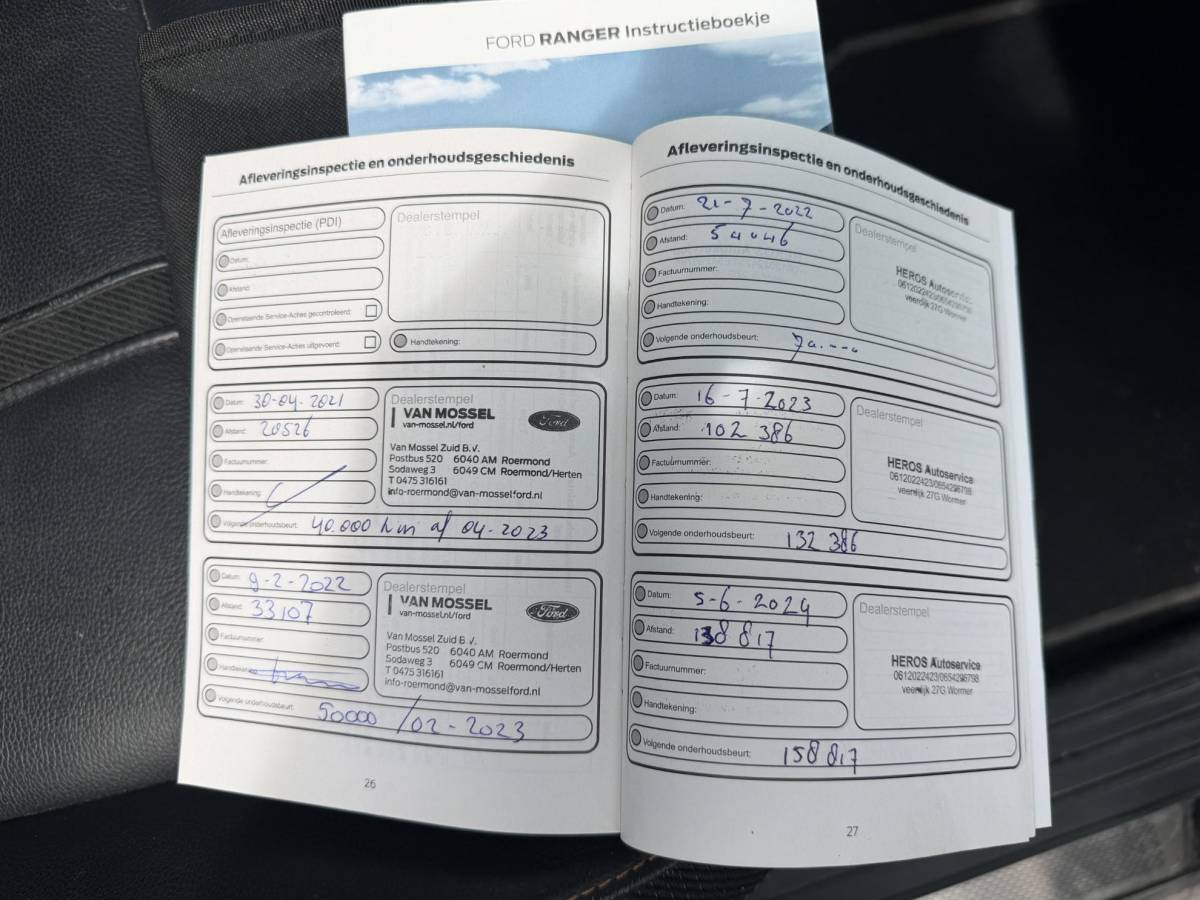 FORD RANGER Instructieboekje
Afleveringsinspectie en onderhoudsgeschiedenis
Afleveringsinspectie (PDI)
Datum:
Afstand:
Openstaande Service-Acties gecontroleerd:
Openstaande Service-Acties uitgevoerd:
Dealerstempel
Handtekening:
Datum: 30-04-2021
Afstand: 20526
Factuurnummer:
Handtekening:
Dealerstempel
VAN MOSSEL
van-mossel.nl/ford
Ford
Van Mossel Zuid B.V.
Postbus 520 6040 AM Roermond
Sodaweg 3 6049 CM Roermond/Herten
T 0475 316161
info-roermond@van-mosselford.nl
Volgende onderhoudsbeurt: 40.000 km of 04-2023
Datum: 9-2-2022
Afstand: 33107
Factuurnummer:
Handtekening:
Dealerstempel
VAN MOSSEL
van-mossel.nl/ford
Ford
Van Mossel Zuid B.V.
Postbus 520 6040 AM Roermond
Sodaweg 3 6049 CM Roermond/Herten
T 0475 316161
info-roermond@van-mosselford.nl
Volgende onderhoudsbeurt: 50000 / 02-2023
26
Afleveringsinspectie en onderhoudsgeschiedenis
Datum: 21-7-2022
Afstand: 54046
Factuurnummer:
Handtekening:
Dealerstempel
HEROS Autoservice
veerdijk 27G Wormer
Volgende onderhoudsbeurt:
Datum: 16-7-2023
Afstand: 102 386
Factuurnummer:
Handtekening:
Dealerstempel
HEROS Autoservice
0612022423/0654296798
veerdijk 27G Wormer
Volgende onderhoudsbeurt: 132 386
Datum: 5-6-2024
Afstand: 138 817
Factuurnummer:
Handtekening:
Dealerstempel
HEROS Autoservice
0612022423/0654296798
veerdijk 27G Wormer
Volgende onderhoudsbeurt: 158 817
27